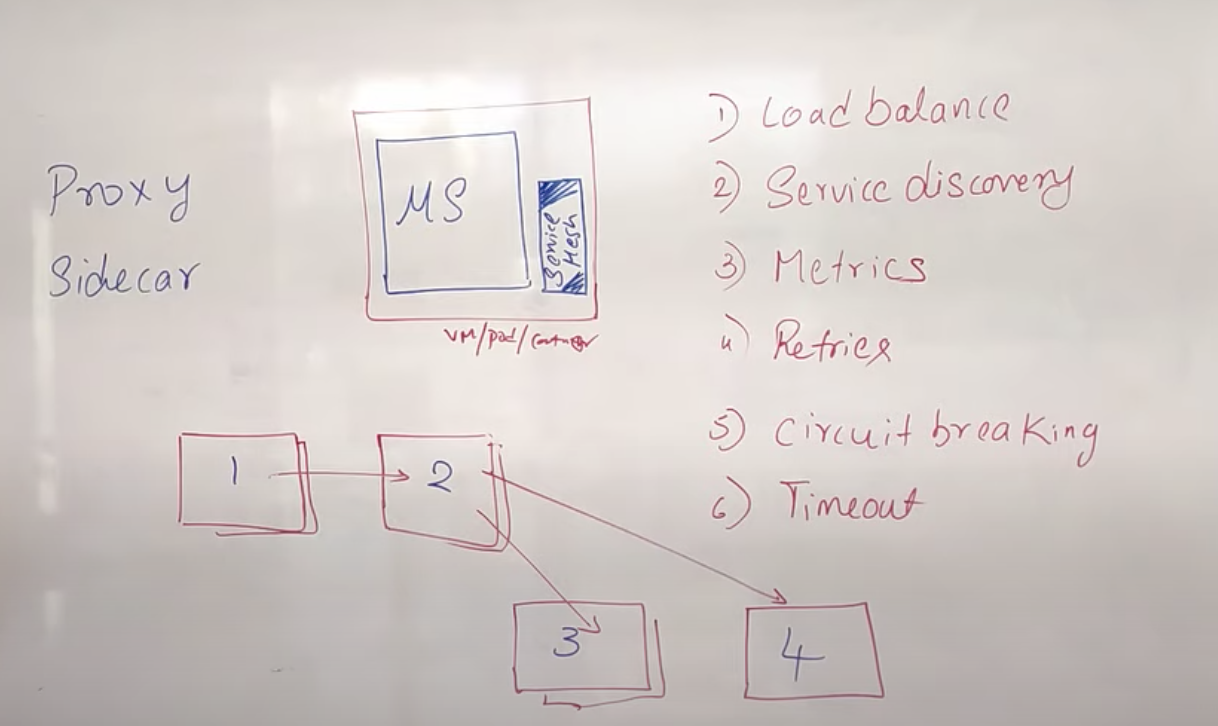 Proxy
Sidecar
MS
Service
Mesh
VM/pod/container
1) Load balance
2) Service discovery
3) Metrics
4) Retries
5) Circuit breaking
6) Timeout
1
2
3
4